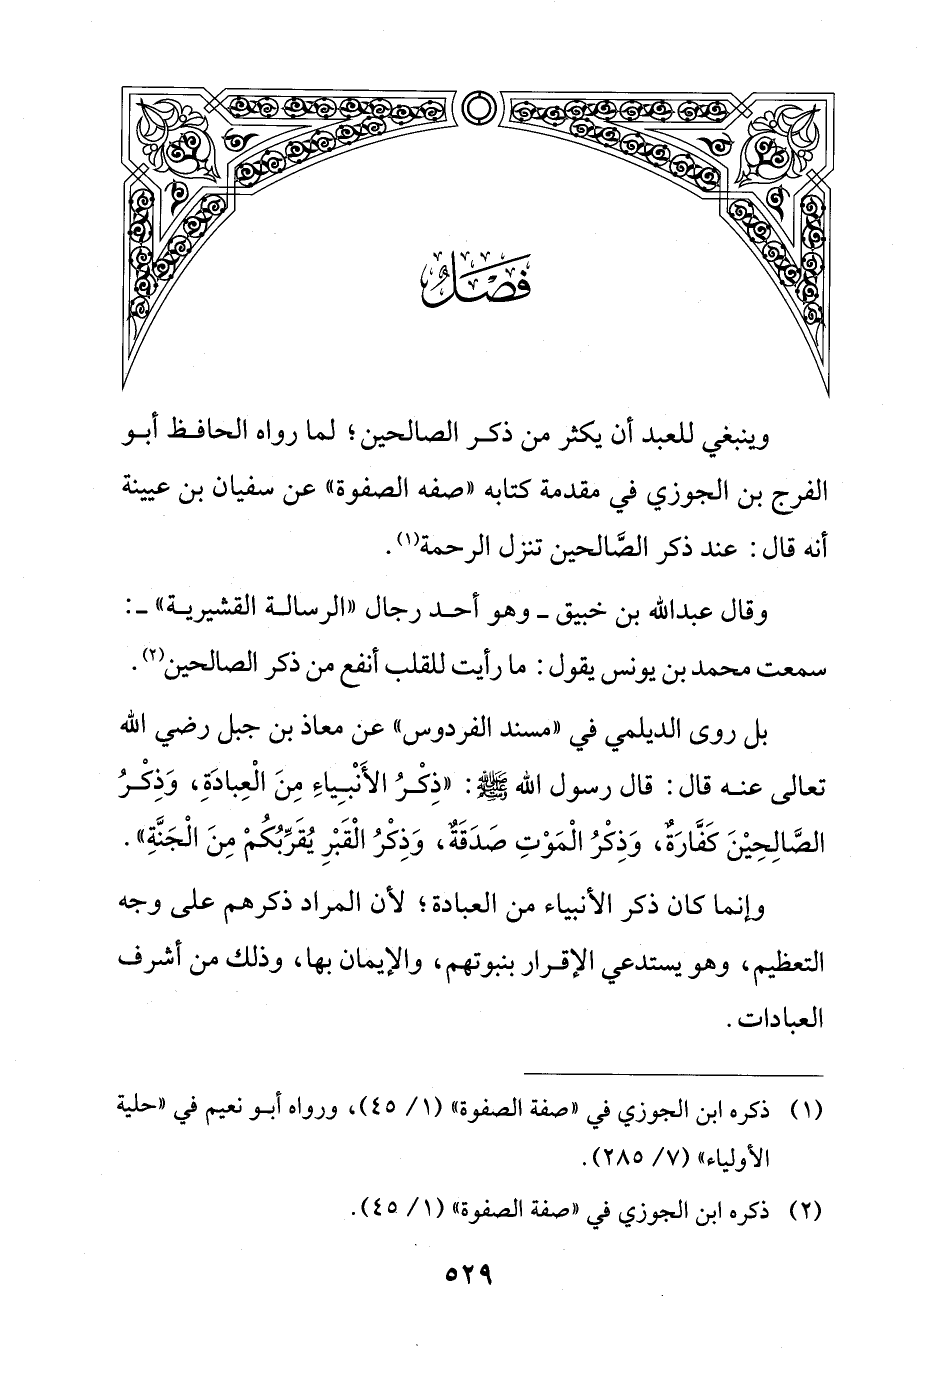 فَصْلٌ
وينبغي للعبد أن يكثر من ذكر الصالحين؛ لما رواه الحافظ أبو
الفرج بن الجوزي في مقدمة كتابه «صفه الصفوة» عن سفيان بن عيينة
أنه قال: عند ذكر الصَّالحين تنزل الرحمة(١).
وقال عبدالله بن خبيق ـ وهو أحد رجال «الرسالة القشيرية» ـ:
سمعت محمد بن يونس يقول: ما رأيت للقلب أنفع من ذكر الصالحين(٢).
بل روى الديلمي في «مسند الفردوس» عن معاذ بن جبل رضي الله
تعالى عنه قال: قال رسول الله ﷺ: «ذِكْرُ الأَنْبِياءِ مِنَ الْعِبادَةِ، وَذِكْرُ
الصَّالِحِيْنَ كَفَّارَةٌ، وَذِكْرُ الْمَوْتِ صَدَقَةٌ، وَذِكْرُ الْقَبْرِ يُقَرِّبُكُمْ مِنَ الْجَنَّةِ».
وإنما كان ذكر الأنبياء من العبادة؛ لأن المراد ذكرهم على وجه
التعظيم، وهو يستدعي الإقرار بنبوتهم، والإيمان بها، وذلك من أشرف
العبادات.
(١) ذكره ابن الجوزي في «صفة الصفوة» (١/ ٤٥)، ورواه أبو نعيم في «حلية
الأولياء» (٧/ ٢٨٥).
(٢) ذكره ابن الجوزي في «صفة الصفوة» (١/ ٤٥).
٥٢٩